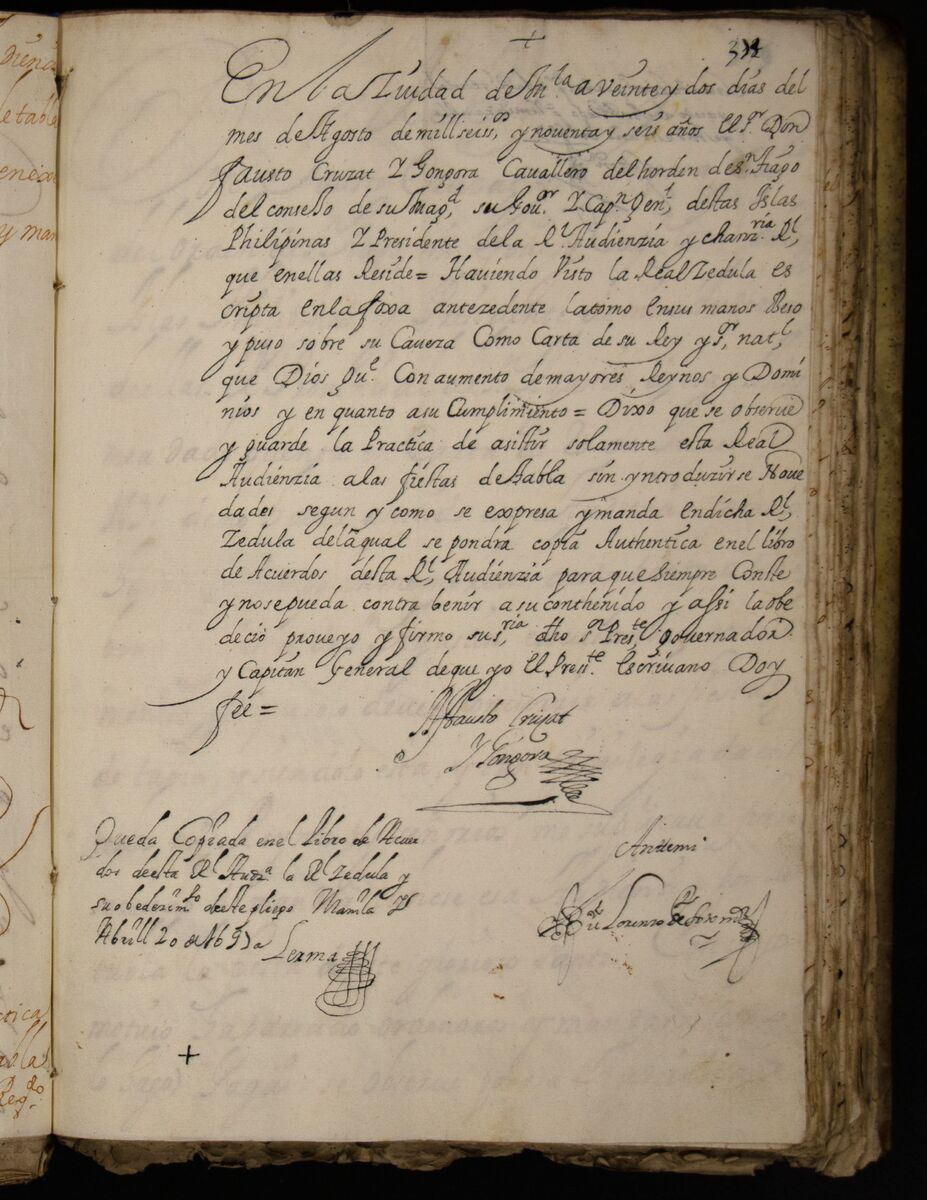 +
En la Ziudad de M.la a veinte y dos dias del
mes de Agosto de mill seiss.os y noventa y seis años El S.r Don
fausto Cruzat Y Gongora Cavallero del horden de s.n tiago
del consejo de su Mag.d, su Gou.or Y Cap.n Gen.l, destas Islas
Philipinas Y Presidente de la R.l Audienzia y chanz.ria R.l,
que en ellas Reside = Haviendo Visto la Real Zedula es
cripta en la foxa antezedente la tomo en sus manos Beso
y puso sobre su Caveza Como Carta de su Rey y s.r nat.l,
que Dios Gu.e Con aumento de mayores Reynos y Domi
nios y en quanto a su Cumplimiento = Dixo que se observe
y guarde la Practica de asistir solamente esta Real
Audienzia a las fiestas de tabla sin yntroduzirse Nove
dades segun y como se expresa y manda en dicha R.l,
Zedula dela qual se pondra copia Authentica en el libro
de Acuerdos desta R.l, Audienzia para que siempre Conste
y no se pueda contra benir a su conthenido y assi la obe
decio proveyo y firmo su s.ria, dho s.n Pres.te Governador
y Capitan General de que yo El Press.te Escrivano Doy
fee =
fausto Cruzat
Y Gongora
Queda Copiada en el Libro de Acuer
dos de esta R.l Aud.a la R.l Zedula y
su obedezim.to de este pliego Manila y
Abrill 20 de 1697 a
Lerma
Antemi
Lorenzo
+
tica